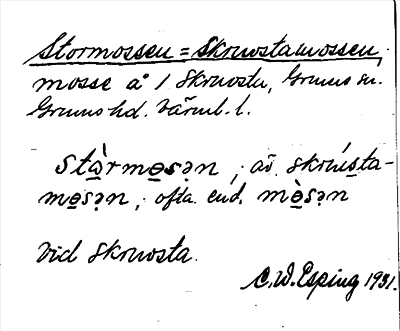 Stormossen = Skruvstamossen,
mosse å 1 Skruvsta, Grums sn.
Grums hd. Värml. l.
stὰ̱rmo̱sən, äv. skrú̱sta-
mo̱sən, ofta end. mò̱sən
Vid Skruvsta.
C. W. Esping 1931.